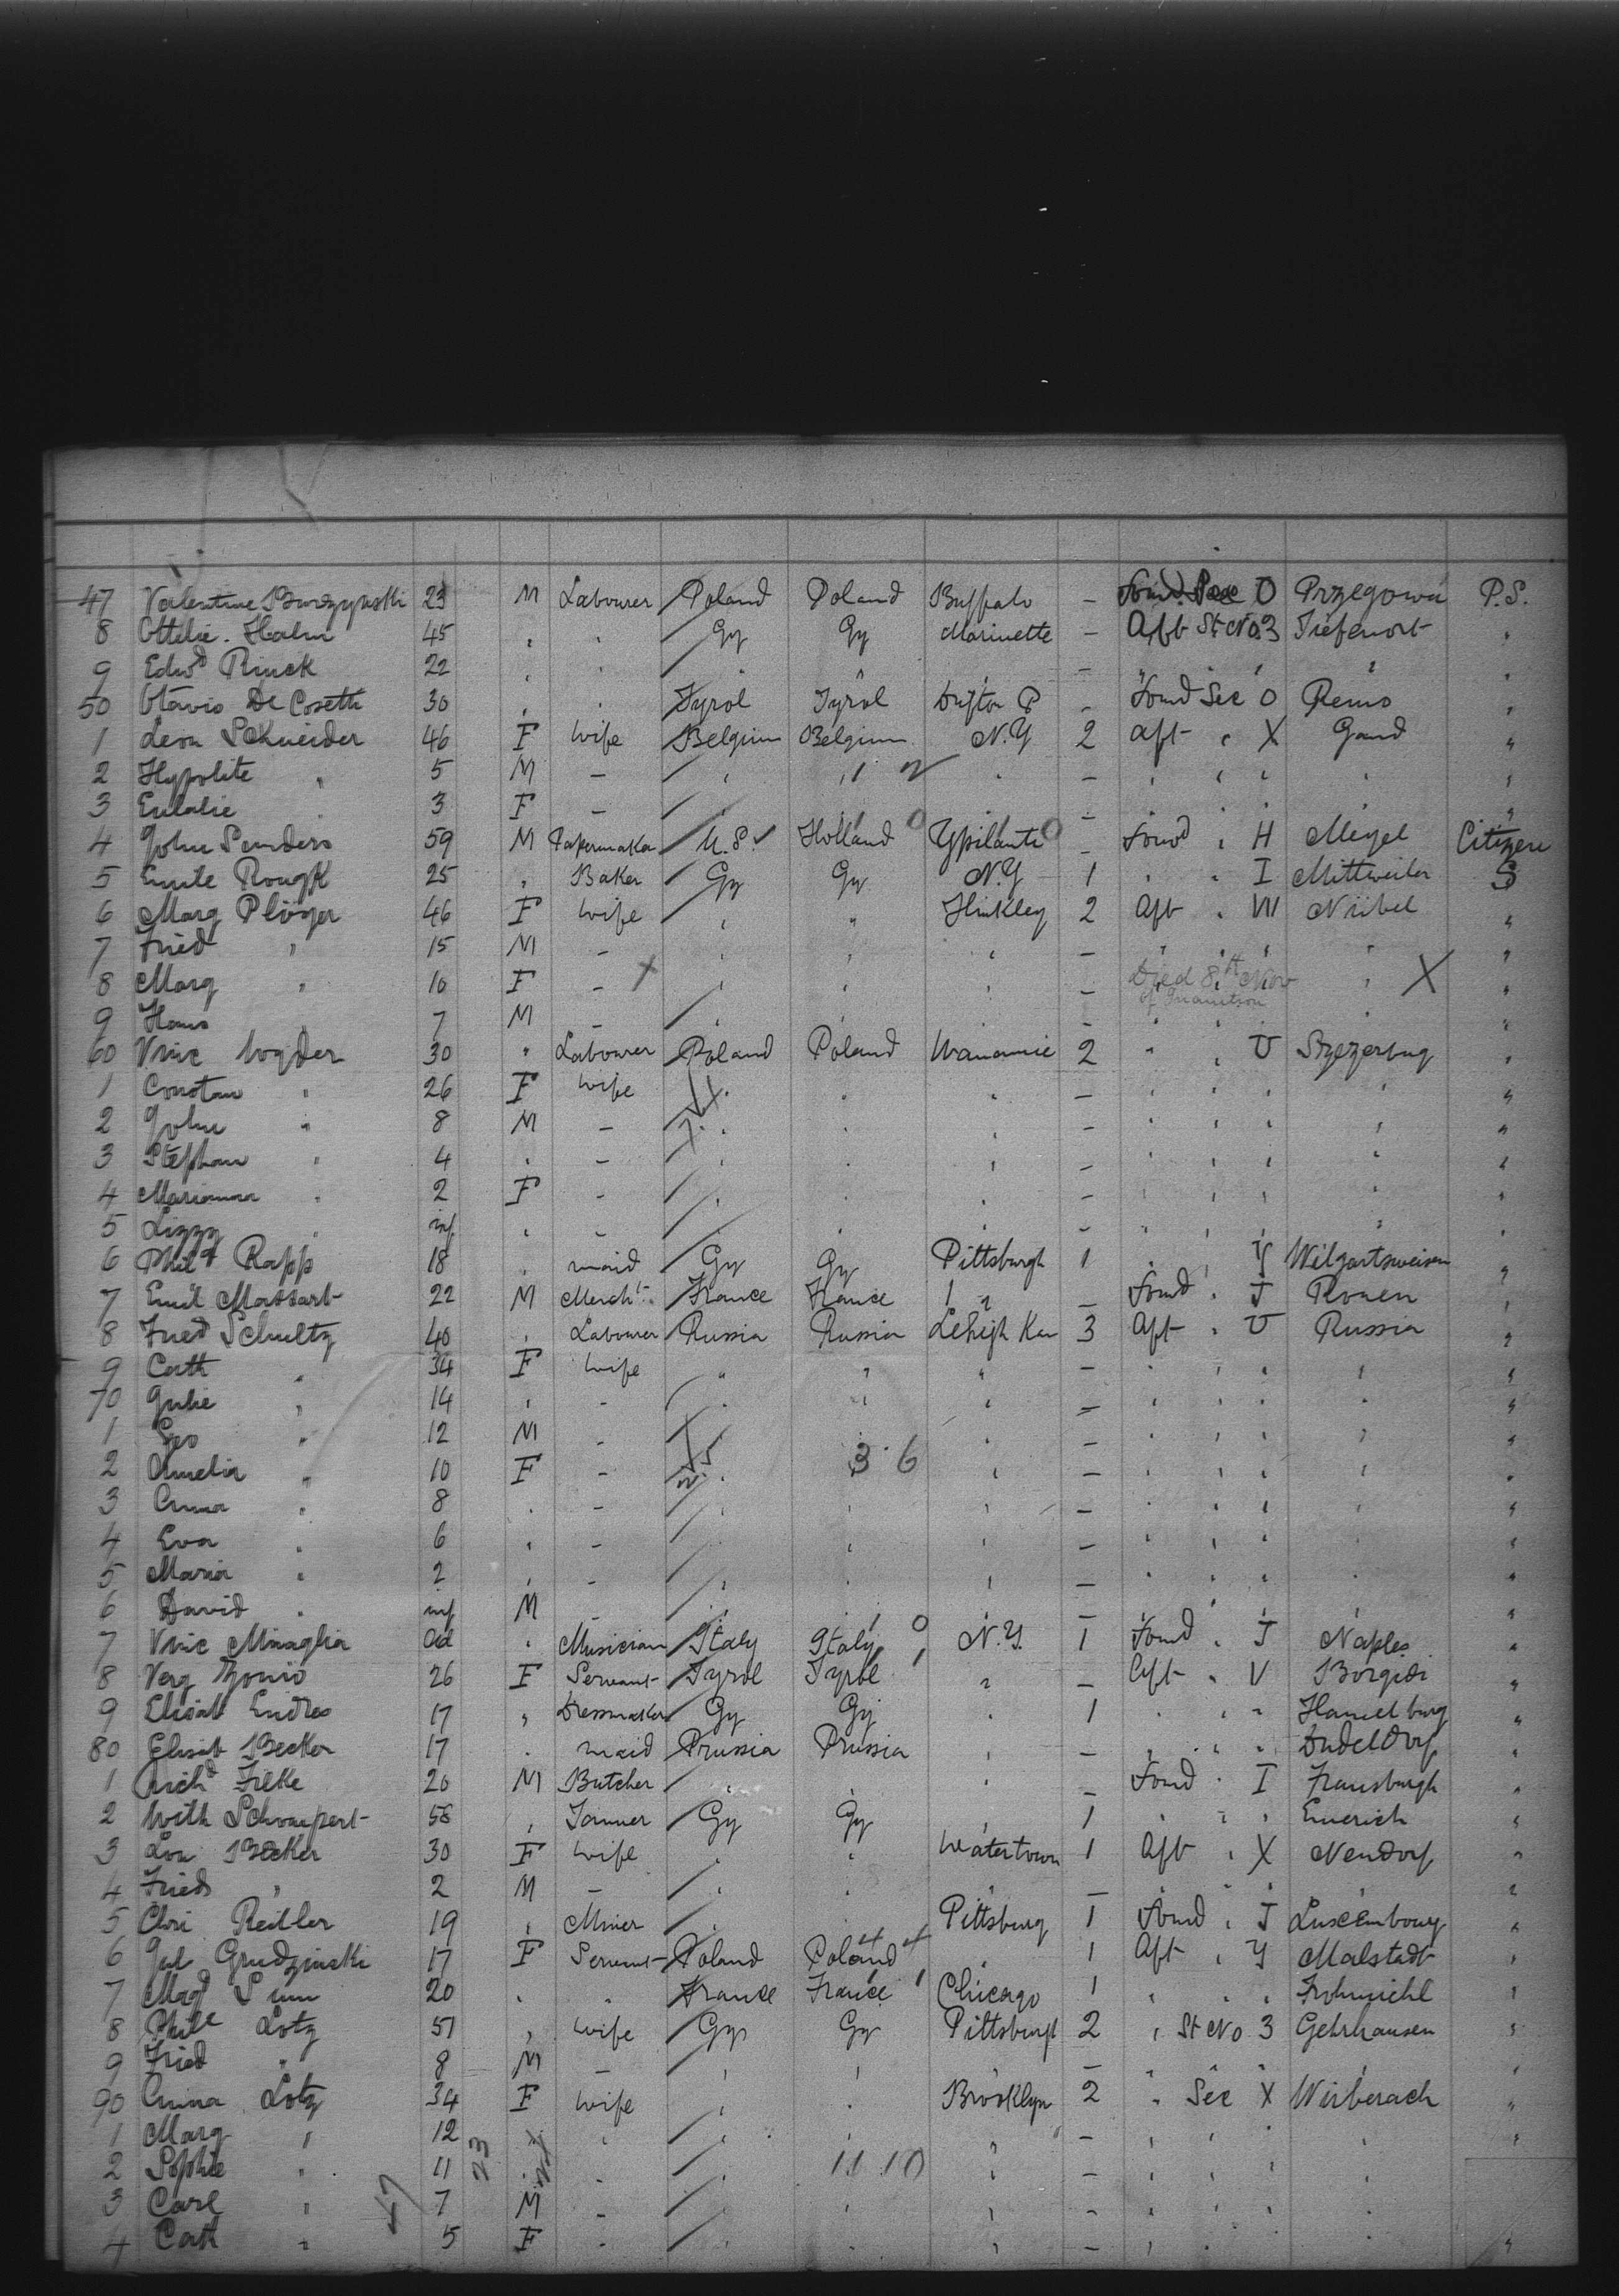 47 Valentine Burzynski 23 M Labourer Poland Poland Buffalo – O Przegowa P.S.
8 Ottilie Halm 45 " " Gy Gy Marinette – Aft St. No. 3 Tiefenort "
9 Edwd Rinck 22 " " " " " – " " " " "
50 Otavio De Cosetti 30 " " Tyrol Tyrol Drifton P – Forwd Sec O Remo "
1 Leon Schneider 46 F Wife Belgium Belgium N.Y 2 Aft " X Gand "
2 Hypolite " 5 M – " " " – " " " " "
3 Eulalie " 3 F – " " " – " " " " "
4 John Senders 59 M Papermaker U.S. Holland Ypilanti – Forwd " H Meyel Citizen
5 Emile Rougk 25 " Baker Gy Gy N.Y 1 " " I Mittweiler S
6 Marg Plöger 46 F Wife " " Hinkley 2 Aft " W Nübel "
7 Fried " 15 M – " " " – " " " " "
8 Marg " 10 F – " " " – Died 8th Nov of Inanition " X "
9 Hans " 7 M – " " " – " " " " "
60 Vinc 30 " Labourer Poland Poland Wanamie 2 " " U "
1 Constan " 26 F Wife " " " – " " " " "
2 John " 8 M – " " " – " " " " "
3 Stephan " 4 " – " " " – " " " " "
4 Marianna " 2 F – " " " – " " " " "
5 Lizzy " inf " – " " " – " " " " "
6 Rapp 18 " maid Gy Gy Pittsburgh 1 " " Y Wilgartsweisen "
7 Emil Massart 22 M Mercht France France " – Forwd " J Rouen "
8 Fried Schultz 40 " Labourer Russia Russia Lehigh Kan 3 Aft " U Russia "
9 Cath " 34 F Wife " " " – " " " " "
70 Julie " 14 " – " " " – " " " " "
1 Geo " 12 M – " " " – " " " " "
2 Amelia " 10 F – " 3 6 " – " " " " "
3 Anna " 8 " – " " " – " " " " "
4 Eva " 6 " – " " " – " " " " "
5 Maria " 2 " – " " " – " " " " "
6 David " inf M – " " " – " " " " "
7 Vinc Minaglia " Musician Italy Italy N.Y. 1 Forwd " J Naples "
8 Verg Zonio 26 F Servant Tyrol Tyrol " – Aft " V "
9 Elisab Endres 17 " Dressmaker Gy Gy " 1 " " " Hamelburg "
80 Elisab Becker 17 " maid Prussia Prussia " – " " " Dudeldorf "
1 Richd Filke 20 M Butcher " " " – Forwd " I Fransburgh "
2 Wilh 58 " Tanner Gy Gy " 1 " " " Emerich "
3 Lou Becker 30 F Wife " " Watertown 1 Aft " X Nendorf "
4 Fried " 2 M – " " " – " " " " "
5 Chri Reitler 19 " Miner " " Pittsburg 1 Forwd " J Luxembourg "
6 Jul Grudzinski 17 F Servant Poland Poland " 1 Aft " Y Malstadt "
7 Magd 20 " " France France Chicago 1 " " " "
8 Lotz 51 " Wife Gy Gy Pittsburgh 2 " St No 3 Gehrhausen "
9 Fried " 8 M – " " " – " " " " "
90 Anna Lotz 34 F Wife " " Brooklyn 2 " Sec X Wirberach "
1 Marg " 12 " " " " " – " " " " "
2 Sophie " 11 23 " – " 11 10 " – " " " " "
3 Carl " 47 7 M – " " " – " " " " "
4 Cath " 5 F – " " " – " " " " "